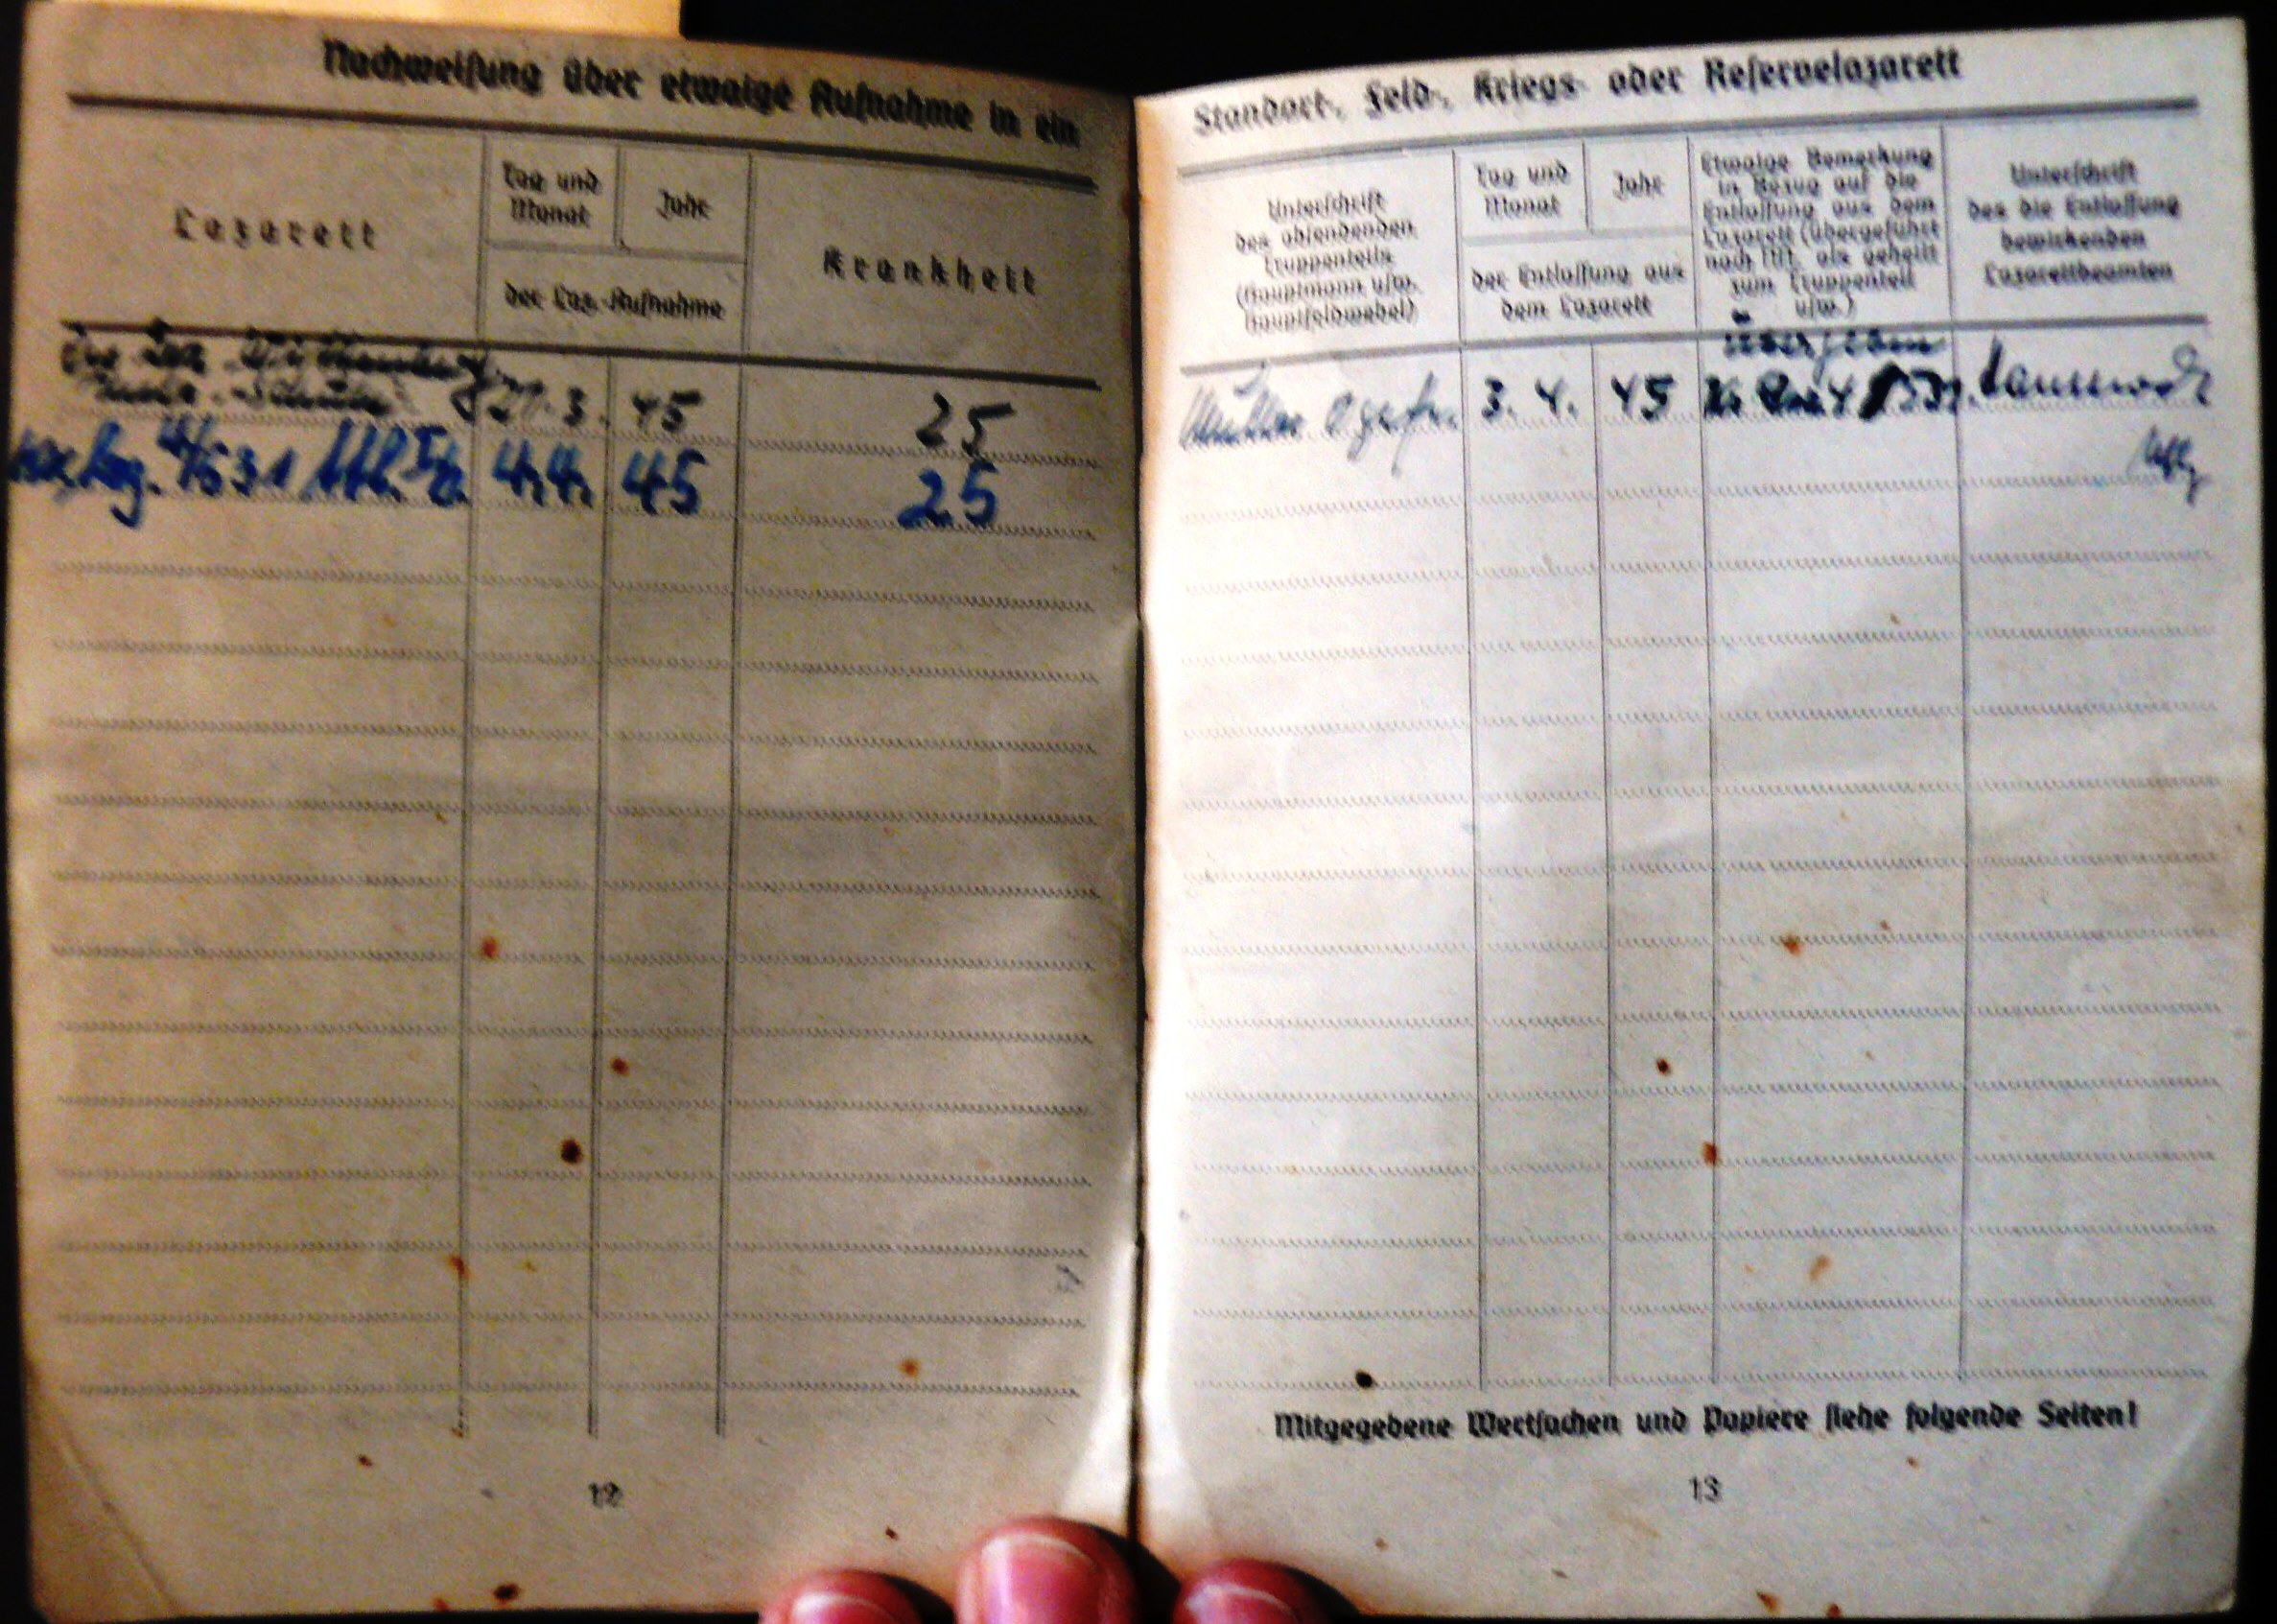 Nachweisung über etwaige Aufnahme in ein
Lazarett
Tag und
Monat
Jahr
der Laz.-Aufnahme
Krankheit
3. 45
25
4.4. 45
25
12
Standort-, Feld-, Kriegs- oder Reservelazarett
Unterschrift
des absendenden
Truppenteils
(Hauptmann usw.
Hauptfeldwebel)
Tag und
Monat
Jahr
der Entlassung aus
dem Lazarett
Etwaige Bemerkung
in Bezug auf die
Entlassung aus dem
Lazarett (übergeführt
nach NN, als geheilt
zum Truppenteil
usw.)
Unterschrift
des die Entlassung
bewirkenden
Lazarettbeamten
3. 4. 45
Mitgegebene Wertsachen und Papiere siehe folgende Seiten!
13